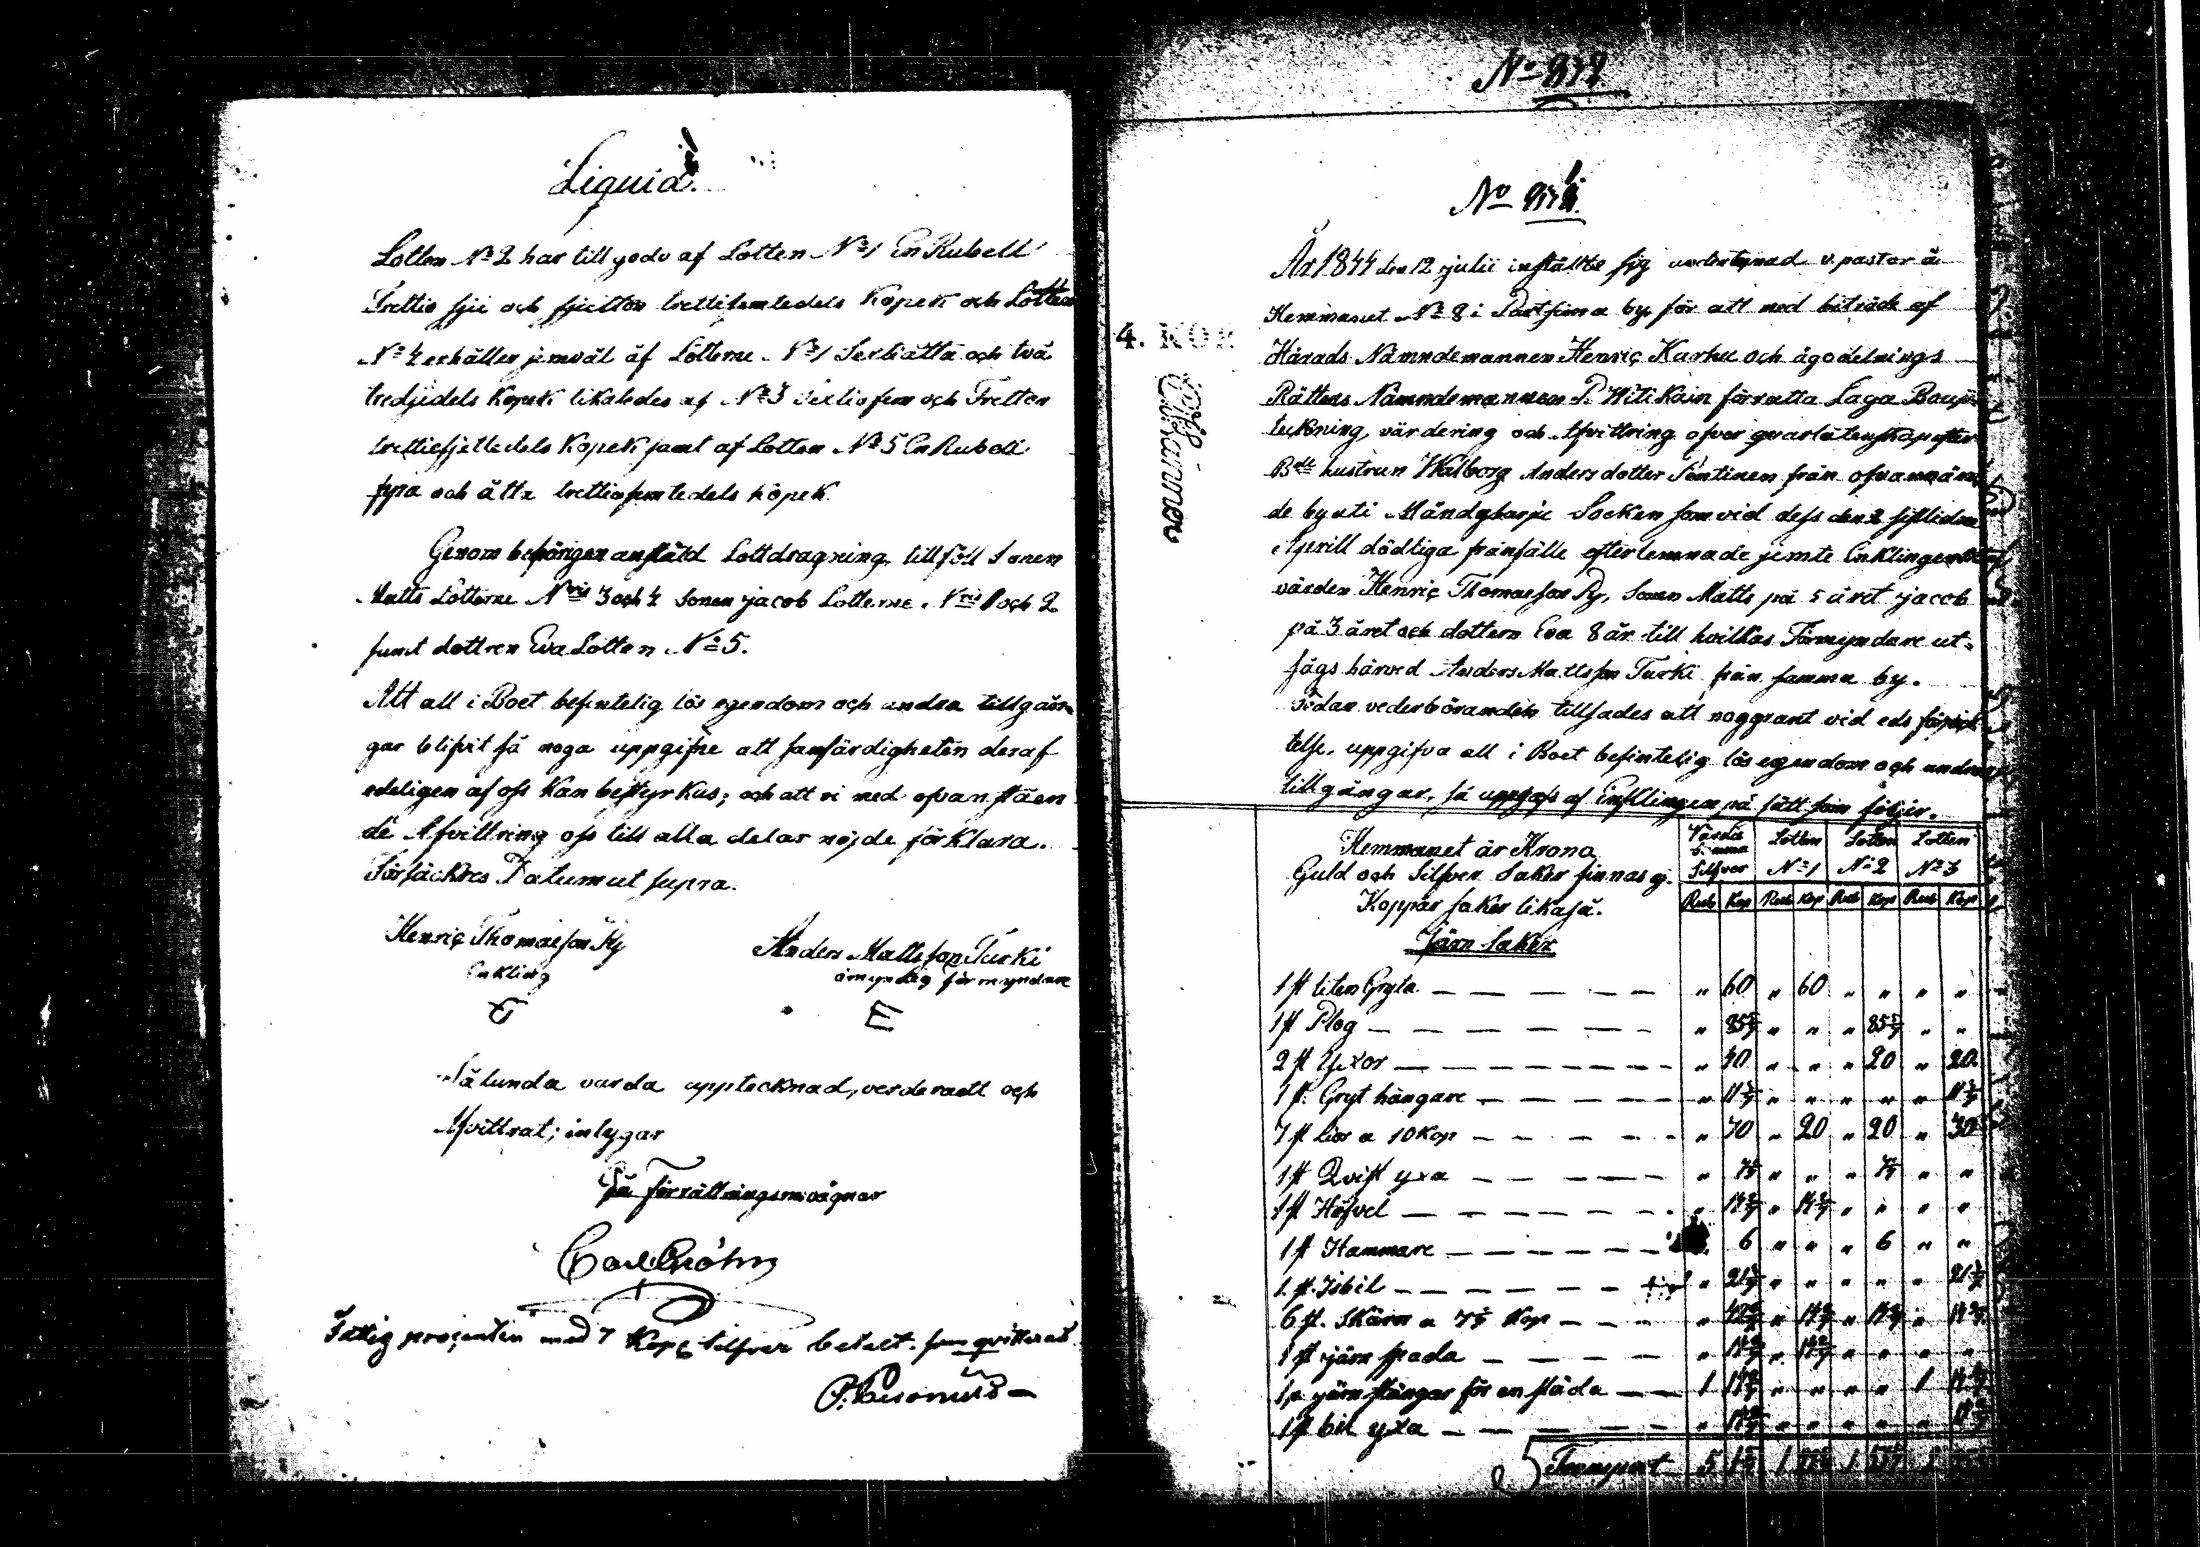 Liquid.
Lotten No 2 har till godo af Lotten No 1 En Rubell
Trettio sju och sjutton trettifemtedels Kopek och Lotten
No 4 erhåller jemväl af Lotterne No 1 Sextiåtta och två
tredjedels Kopek likaledes af No 3 Sextiofem och Tretton
trettiefjettedels Kopek samt af Lotten No 5 En Rubell
fyra och åtta trettiofemtedels kopek.
Genom behörigen anstäld Lottdragning tillföll Sonen
Matts Lotterne Nris 3 och 4 Sonen Jacob Lotterne Nris 1 och 2
samt dottren Eva Lotten No 5.
Att all i Boet befintelig lös egendom och andra tillgån-
gar blifvit så noga uppgifne att sanfärdigheten deraf
edeligen af oss kan bestyrkas; och att vi med ofvanståen
de Afvittring oss till alla delar nöjde förklara.
Försäckres Datum ut supra.
Henric Thomasson Ry
Enkling
Anders Mattsson Turki
omyndig förmyndare
E
Sålunda varda upptecknad, verderadt och
Afvittrat; intygar
På Förrättningsmvägnar
Carl
Fattig procenten med 7 Kop silfver betalt som qvitteras
No
No
År 1844 den 12 julii instälte sig undertecknad v. pastor å
Hemmanet No 8 i Partsima by för att med biträde af
Härads Nämndemannen Henric Karhu och ägodelnings
Rättens Nämndemannen P. Witikain förrätta Laga Boupp
teckning, värdering och Afvittring öfver qvarlåtenskapen efter
Bde hustrun Walborg Andersdotter Pöntinen från ofvannäm
de by uti Mändyharju Socken som vid dess den 2 sistledne
Aprill dödliga frånfälle efterlemnade jemte Enklingen
värden Henric Thomasson Ry, Sonen Matts på 5 året Jacob
på 3 året och dottern Eva 8 år till hvilkas Förmyndare ut-
sågs härved Anders Mattsson Turki från samma by.
Sedan vederböranden tillsades att noggrant vid eds förpligt
telse, uppgifva all i Boet befintelig lös egendom och andra
tillgångar, så uppgafs af Enklingen på sätt som följer.
4. KOR
Hemmanet är Krono
Guld och Silfver Saker finnas ej.
Koppar saker likaså.
Järn Saker
Silfver Lotten No 1 Lotten No 2 Lotten No 3
Rub Kop Rub Kop Rub Kop Rub Kop
1 st liten Gryta " 60 " 60 " " " "
1 st Plog " 85 5/7 " " " 85 5/7 " "
2 st Yxor " 40 " " " 20 " 20
1 st. Gryt hängare
7 st Liar a 10 Kop " 70 " 20 " 20 " 30
1 st Qvist yxa
1 st Höfvel " 14 2/7 " 14 2/7 " " " "
1 st Hammare 6 " " " 6 " "
1 st. Isbil
6 st. Skäror a 7 1/7 Kop
1 st järn spada " 14 2/7 " 14 2/7 " " " "
järn stänger för en släda
1 st bil yxa
Transport